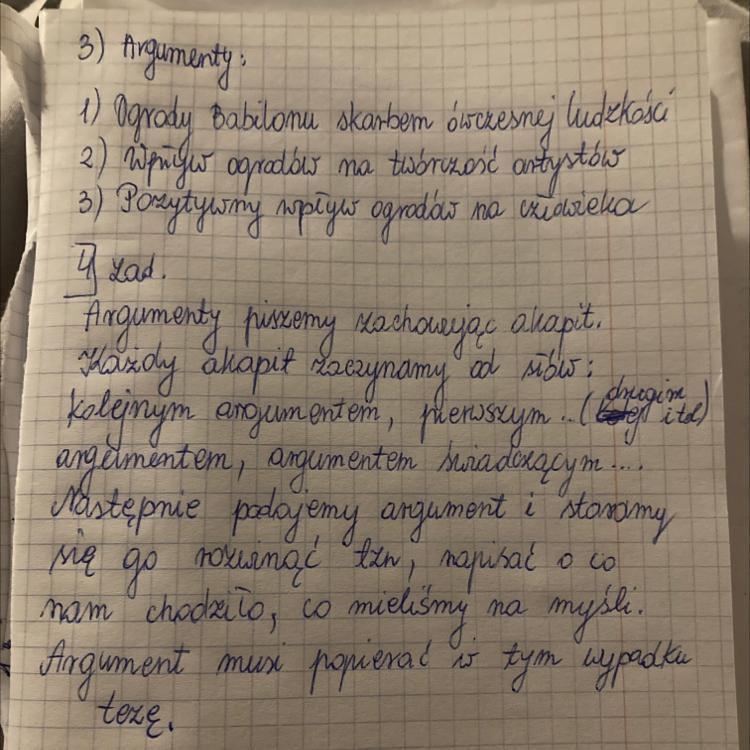 3) Argumenty:
1) Ogrody Babilonu skarbem ówczesnej ludzkości
2) Wpływ ogrodów na twórczość artystów
3) Pozytywny wpływ ogrodów na człowieka
4 zad.
Argumenty piszemy zachowując akapit.
Każdy akapit zaczynamy od słów:
kolejnym argumentem, pierwszym.. (drugim itd)
argumentem, argumentem świadczącym....
Następnie podajemy argument i staramy
się go rozwinąć tzn, napisać o co
nam chodziło, co mieliśmy na myśli.
Argument musi popierać w tym wypadku
tezę.